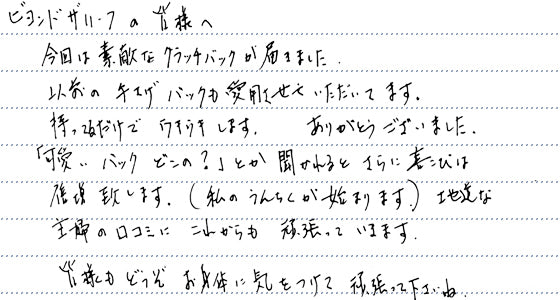 ビヨンドザリーフの皆様へ
今回は素敵なクラッチバックが届きました.
以前の手さげバックも愛用させていただいてます。
持ってるだけでウキウキします。 ありがとうございました.
「可愛いバックどこの?」とか聞かれるとさらに喜びは
倍増致します。(私のうんちくが始まります) 地道な
主婦の口コミにこれからも頑張っていきます.
皆様もどうぞお身体に気をつけて頑張って下さいね.